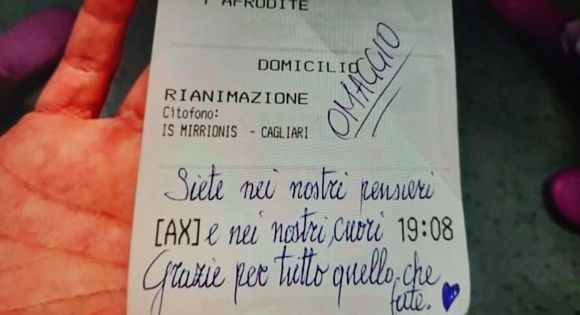 1 AFRODITE
DOMICILIO
OMAGGIO
RIANIMAZIONE
Citofono:
IS MIRRIONIS - CAGLIARI
Siete nei nostri pensieri
[AX] e nei nostri cuori 19:08
Grazie per tutto quello che
fate.